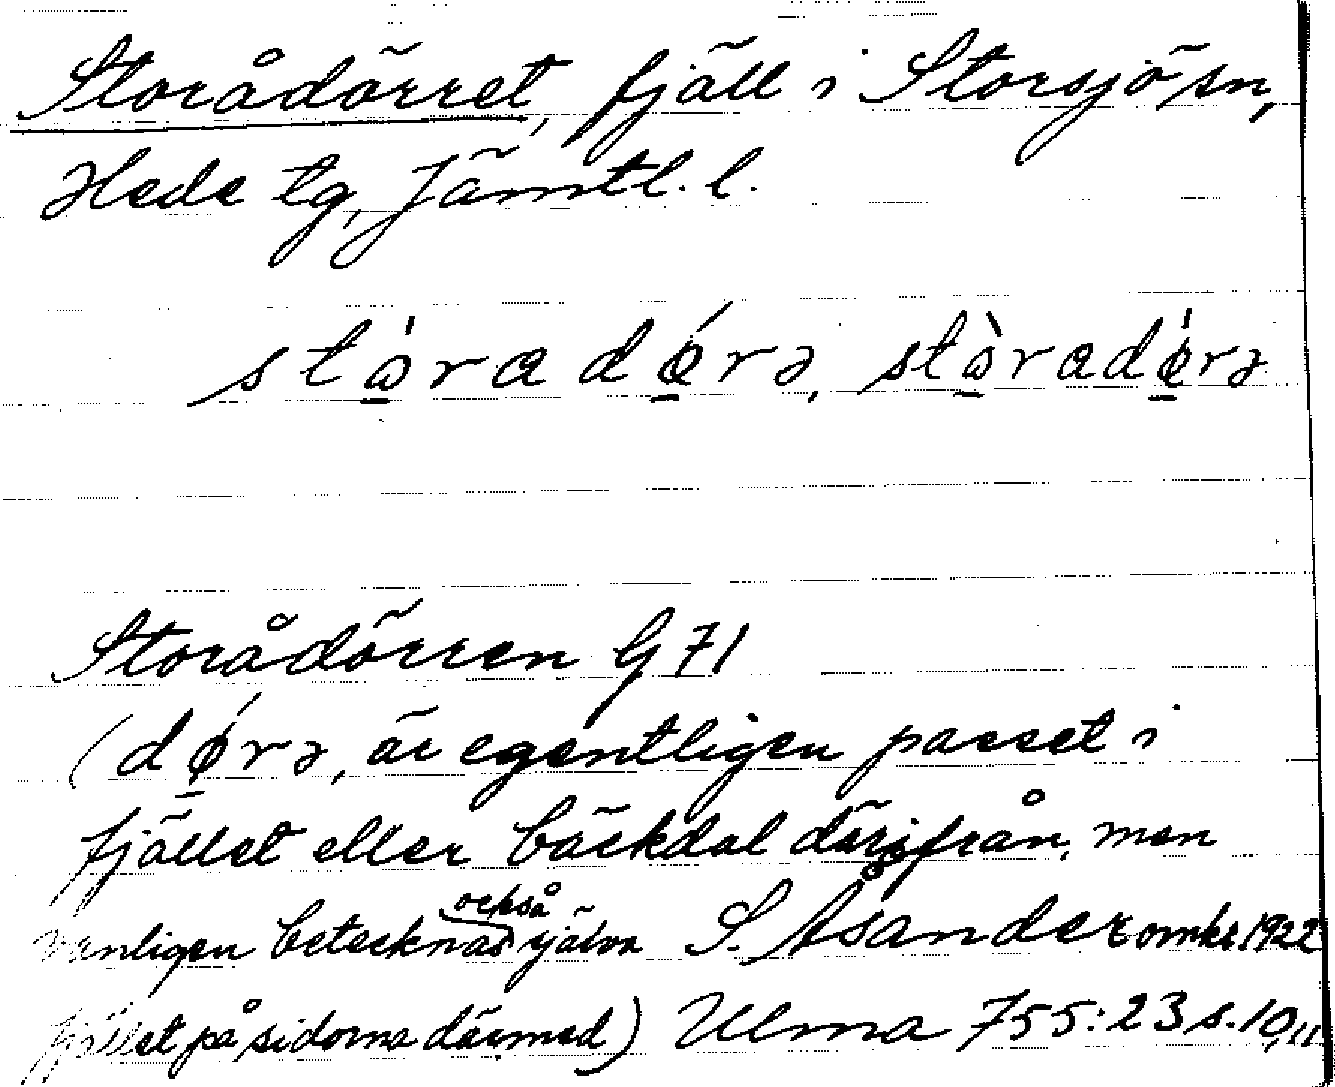 Storådörret, fjäll i Storsjö sn,
Hede tg, Jämtl. l.
stώ̱radǿ̱rə, stὼ̱radǿ̱rə
Storådörren G 71
(dǿ̱rə, är egentligen passet i
fjället eller bäckdal därifrån, men
vanligen betecknas också själva S. Åsander omkr. 1922
fjället på sidorna därmed) Ulma 755:23 s. 10, 11